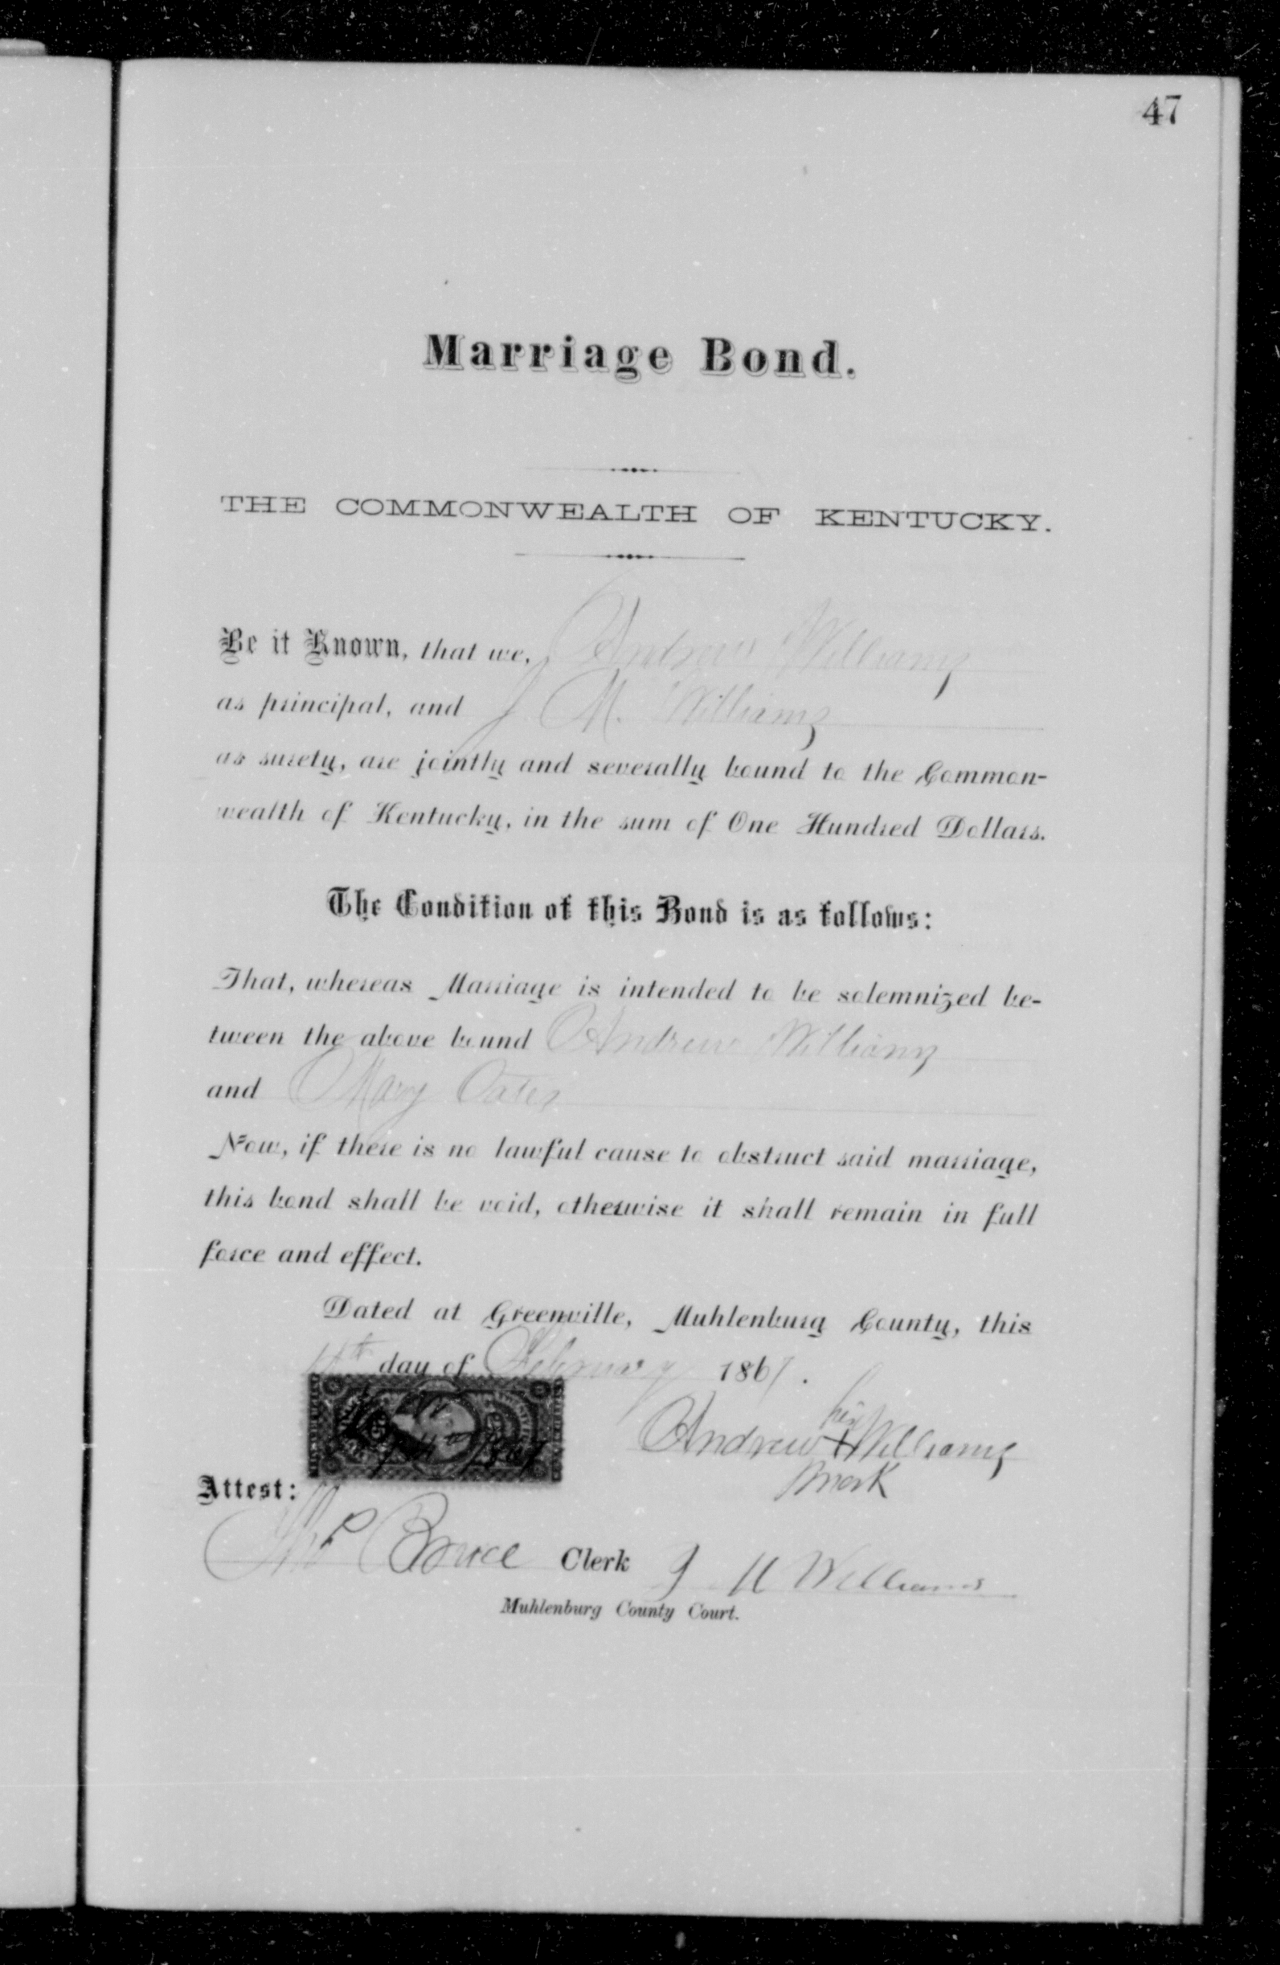 47
Marriage Bond.
THE COMMONWEALTH OF KENTUCKY.
Be it Known, that we, Andrew Williams
as principal, and J M. Williams
as surety, are jointly and severally bound to the Common-
wealth of Kentucky, in the sum of One Hundred Dollars.
The Condition of this Bond is as follows:
That, whereas Marriage is intended to be solemnized be-
tween the above bound Andrew Williams
and Mary Oates
Now, if there is no lawful cause to obstruct said marriage,
this bond shall be void, otherwise it shall remain in full
force and effect.
Dated at Greenville, Muhlenburg County, this
day of February 1867.
his
Andrew + Williams
mark
Attest:
Bruce Clerk J M Williams
Muhlenburg County Court.